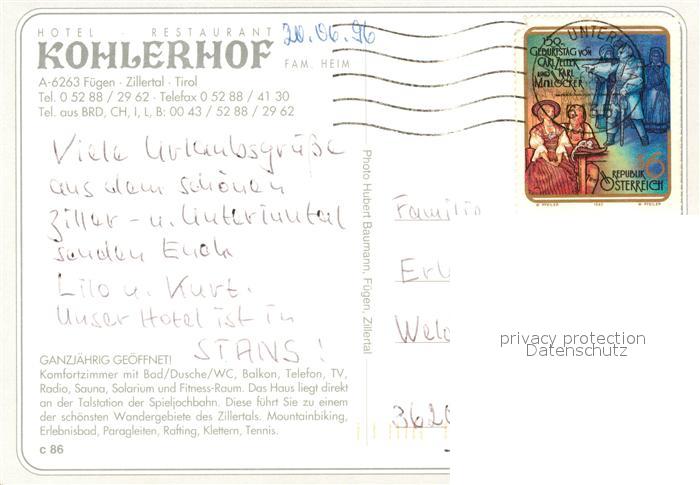 HOTEL · RESTAURANT
KOHLERHOF
FAM. HEIM
20.06.96
A-6263 Fügen · Zillertal · Tirol
Tel. 0 52 88 / 29 62 · Telefax 0 52 88 / 41 30
Tel. aus BRD, CH, I, L, B: 00 43 / 52 88 / 29 62
Viele Urlaubsgrüße
aus dem schönen
Ziller- u. Unterinntal
senden Euch
Lilo u. Kurt.
Unser Hotel ist in
STANS!
GANZJÄHRIG GEÖFFNET!
Komfortzimmer mit Bad/Dusche/WC, Balkon, Telefon, TV,
Radio, Sauna, Solarium und Fitness-Raum. Das Haus liegt direkt
an der Talstation der Spieljochbahn. Diese führt Sie zu einem
der schönsten Wandergebiete des Zillertals. Mountainbiking,
Erlebnisbad, Paragleiten, Rafting, Klettern, Tennis.
c 86
Photo Hubert Baumann, Fügen, Zillertal
UNTER
150.
GEBURTSTAG VON
CARL ZELLER
UND KARL
MILLÖCKER
6
REPUBLIK
ÖSTERREICH
PFEILER
1992
PFEILER
Familie
3620
privacy protection
Datenschutz